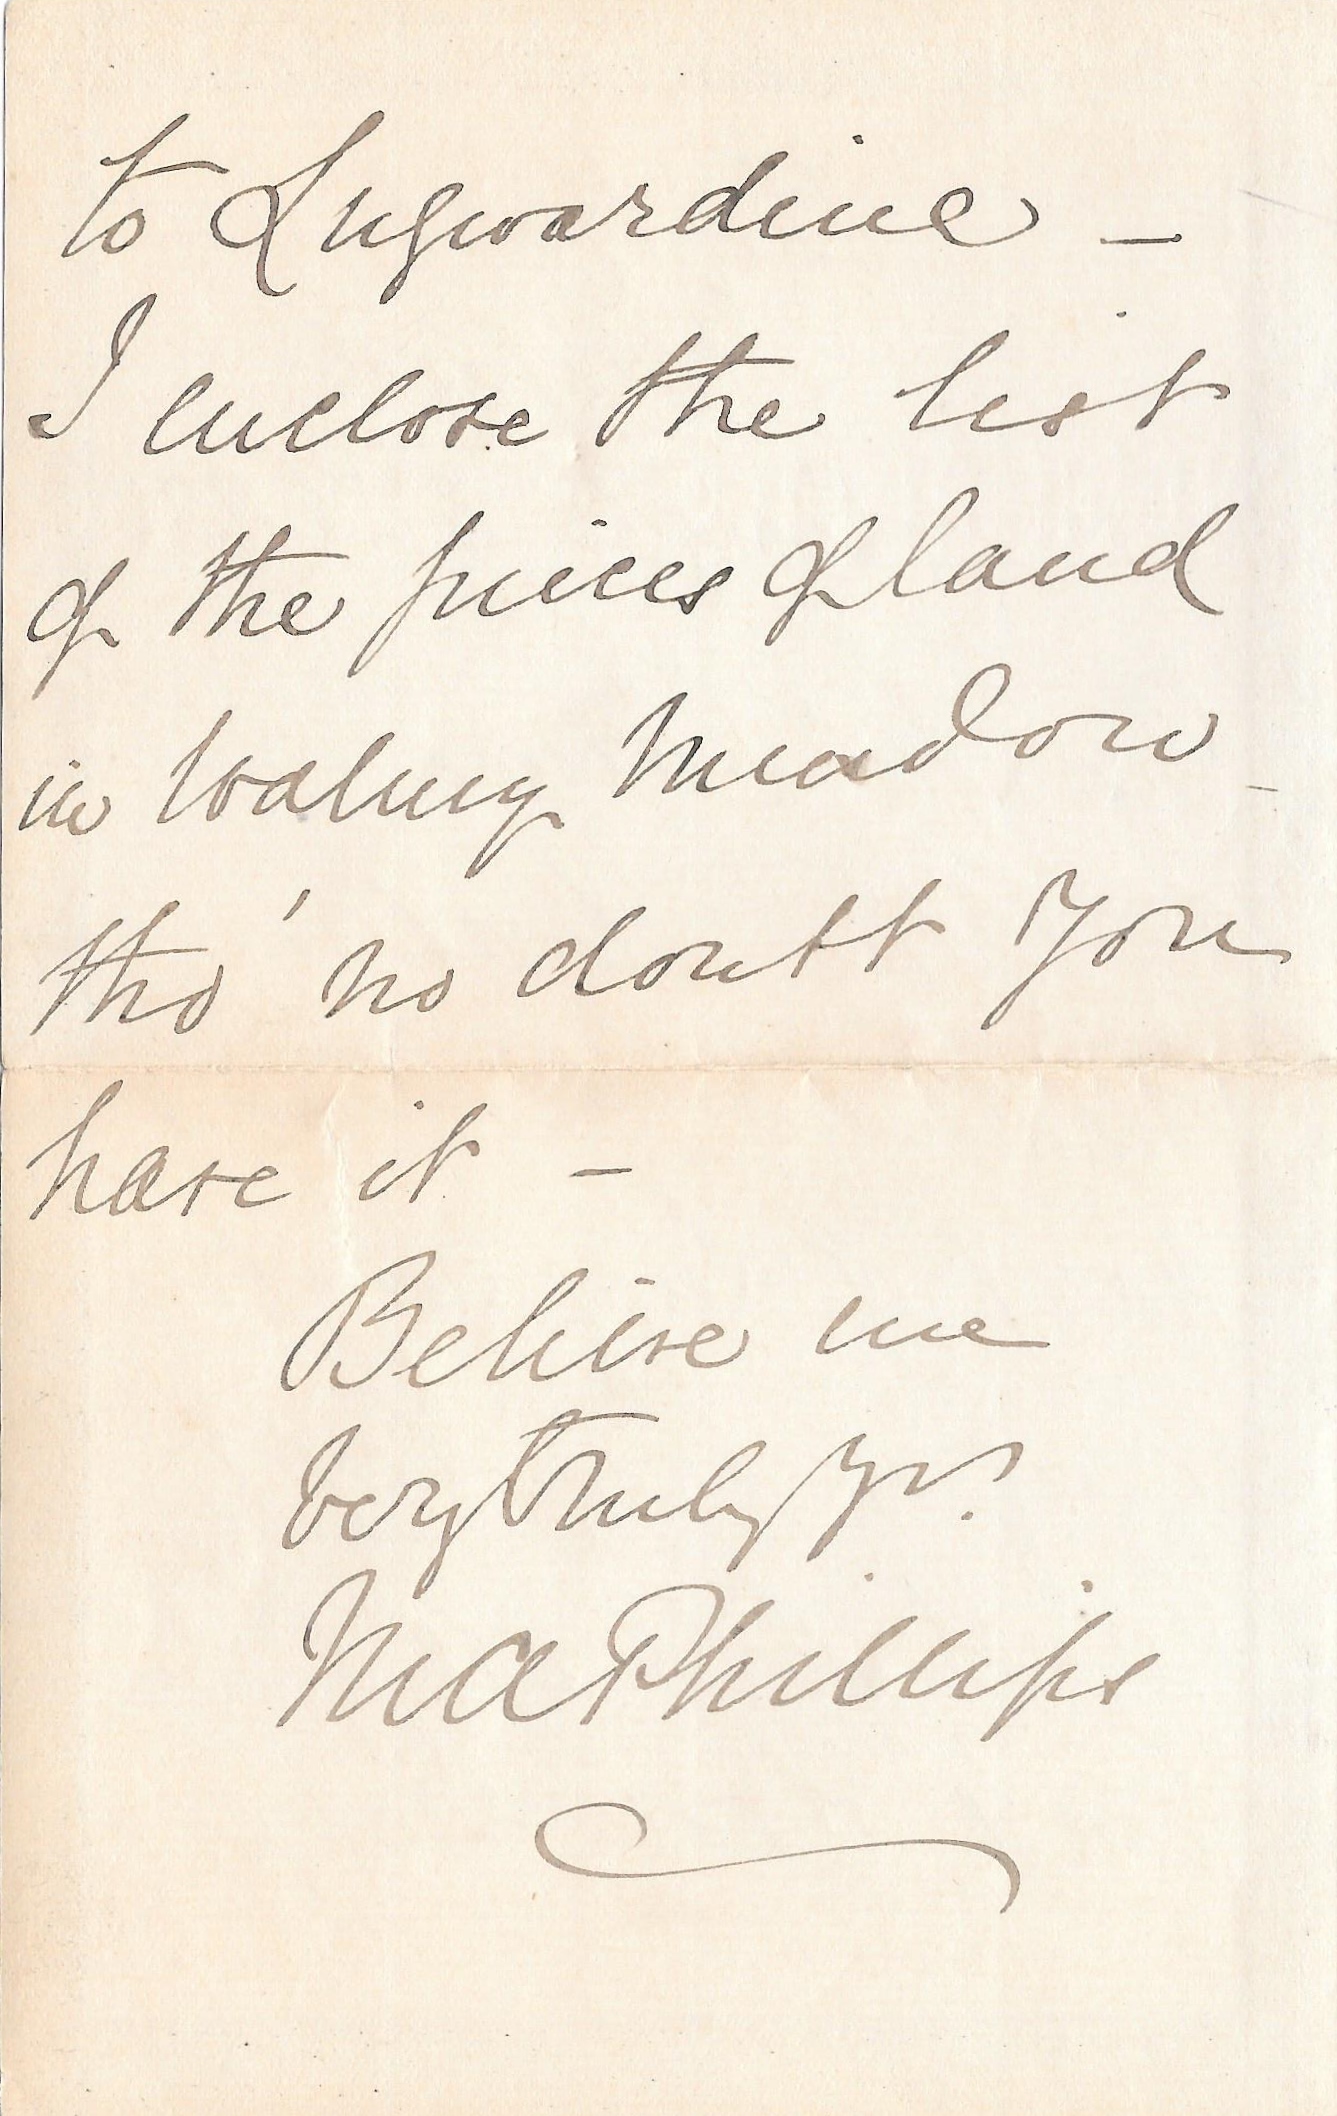 to Lugwardine –
I enclose the list
of the pieces of land
in Walney Meadow –
tho' no doubt you
have it –
Believe me
very truly yrs.
MAPhillips